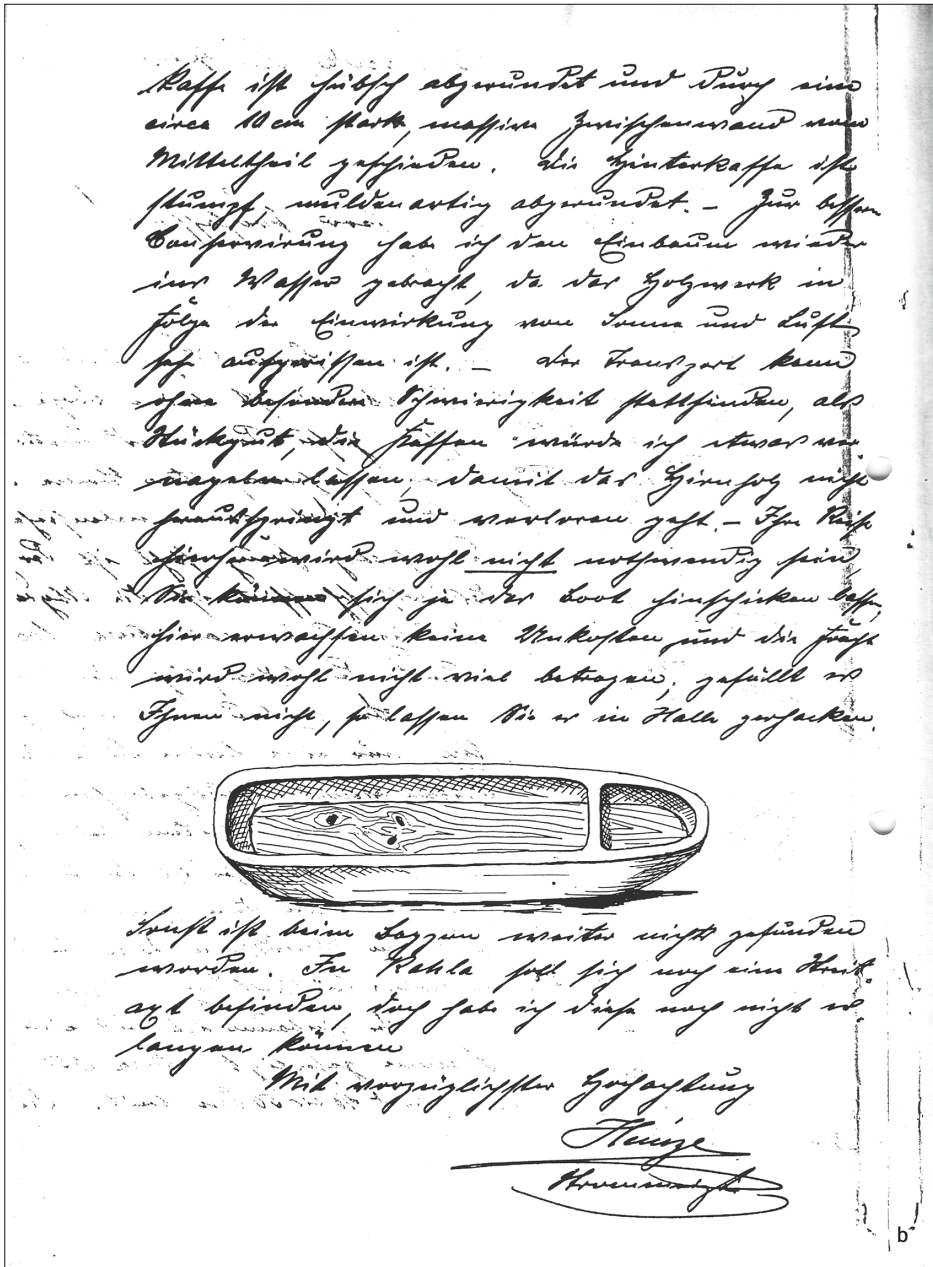 kaffe ist hübsch abgerundet und durch eine
circa 10 cm starke, massive Zwischenwand vom
Mitteltheil geschieden. Die Hinterkaffe ist
stumpf, muldenartig abgerundet. – Zur bessern
Conservirung habe ich den Einbaum wieder
ins Wasser gebracht, da das Holzwerk in
Folge der Einwirkung von Sonne und Luft
sehr aufgerissen ist. – Der Transport kann
ohne besondere Schwierigkeit stattfinden, als
Stückgut, die Kaffen würde ich etwas ver
nageln lassen, damit das Hirnholz nicht
herausspringt und verloren geht. – Ihre Reise
hierher wird wohl nicht nothwendig sein,
Sie können sich ja das Boot hinschicken lassen,
hier erwachsen keine Unkosten und die Fracht
wird wohl nicht viel betragen; gefällt es
Ihnen nicht, so lassen Sie es in Halle zerhacken.
Sonst ist beim Baggern weiter nichts gefunden
worden. In Kahla soll sich noch eine Streit-
axt befinden, doch habe ich diese noch nicht er-
langen können
Mit vorzüglichster Hochachtung
Heinze
b